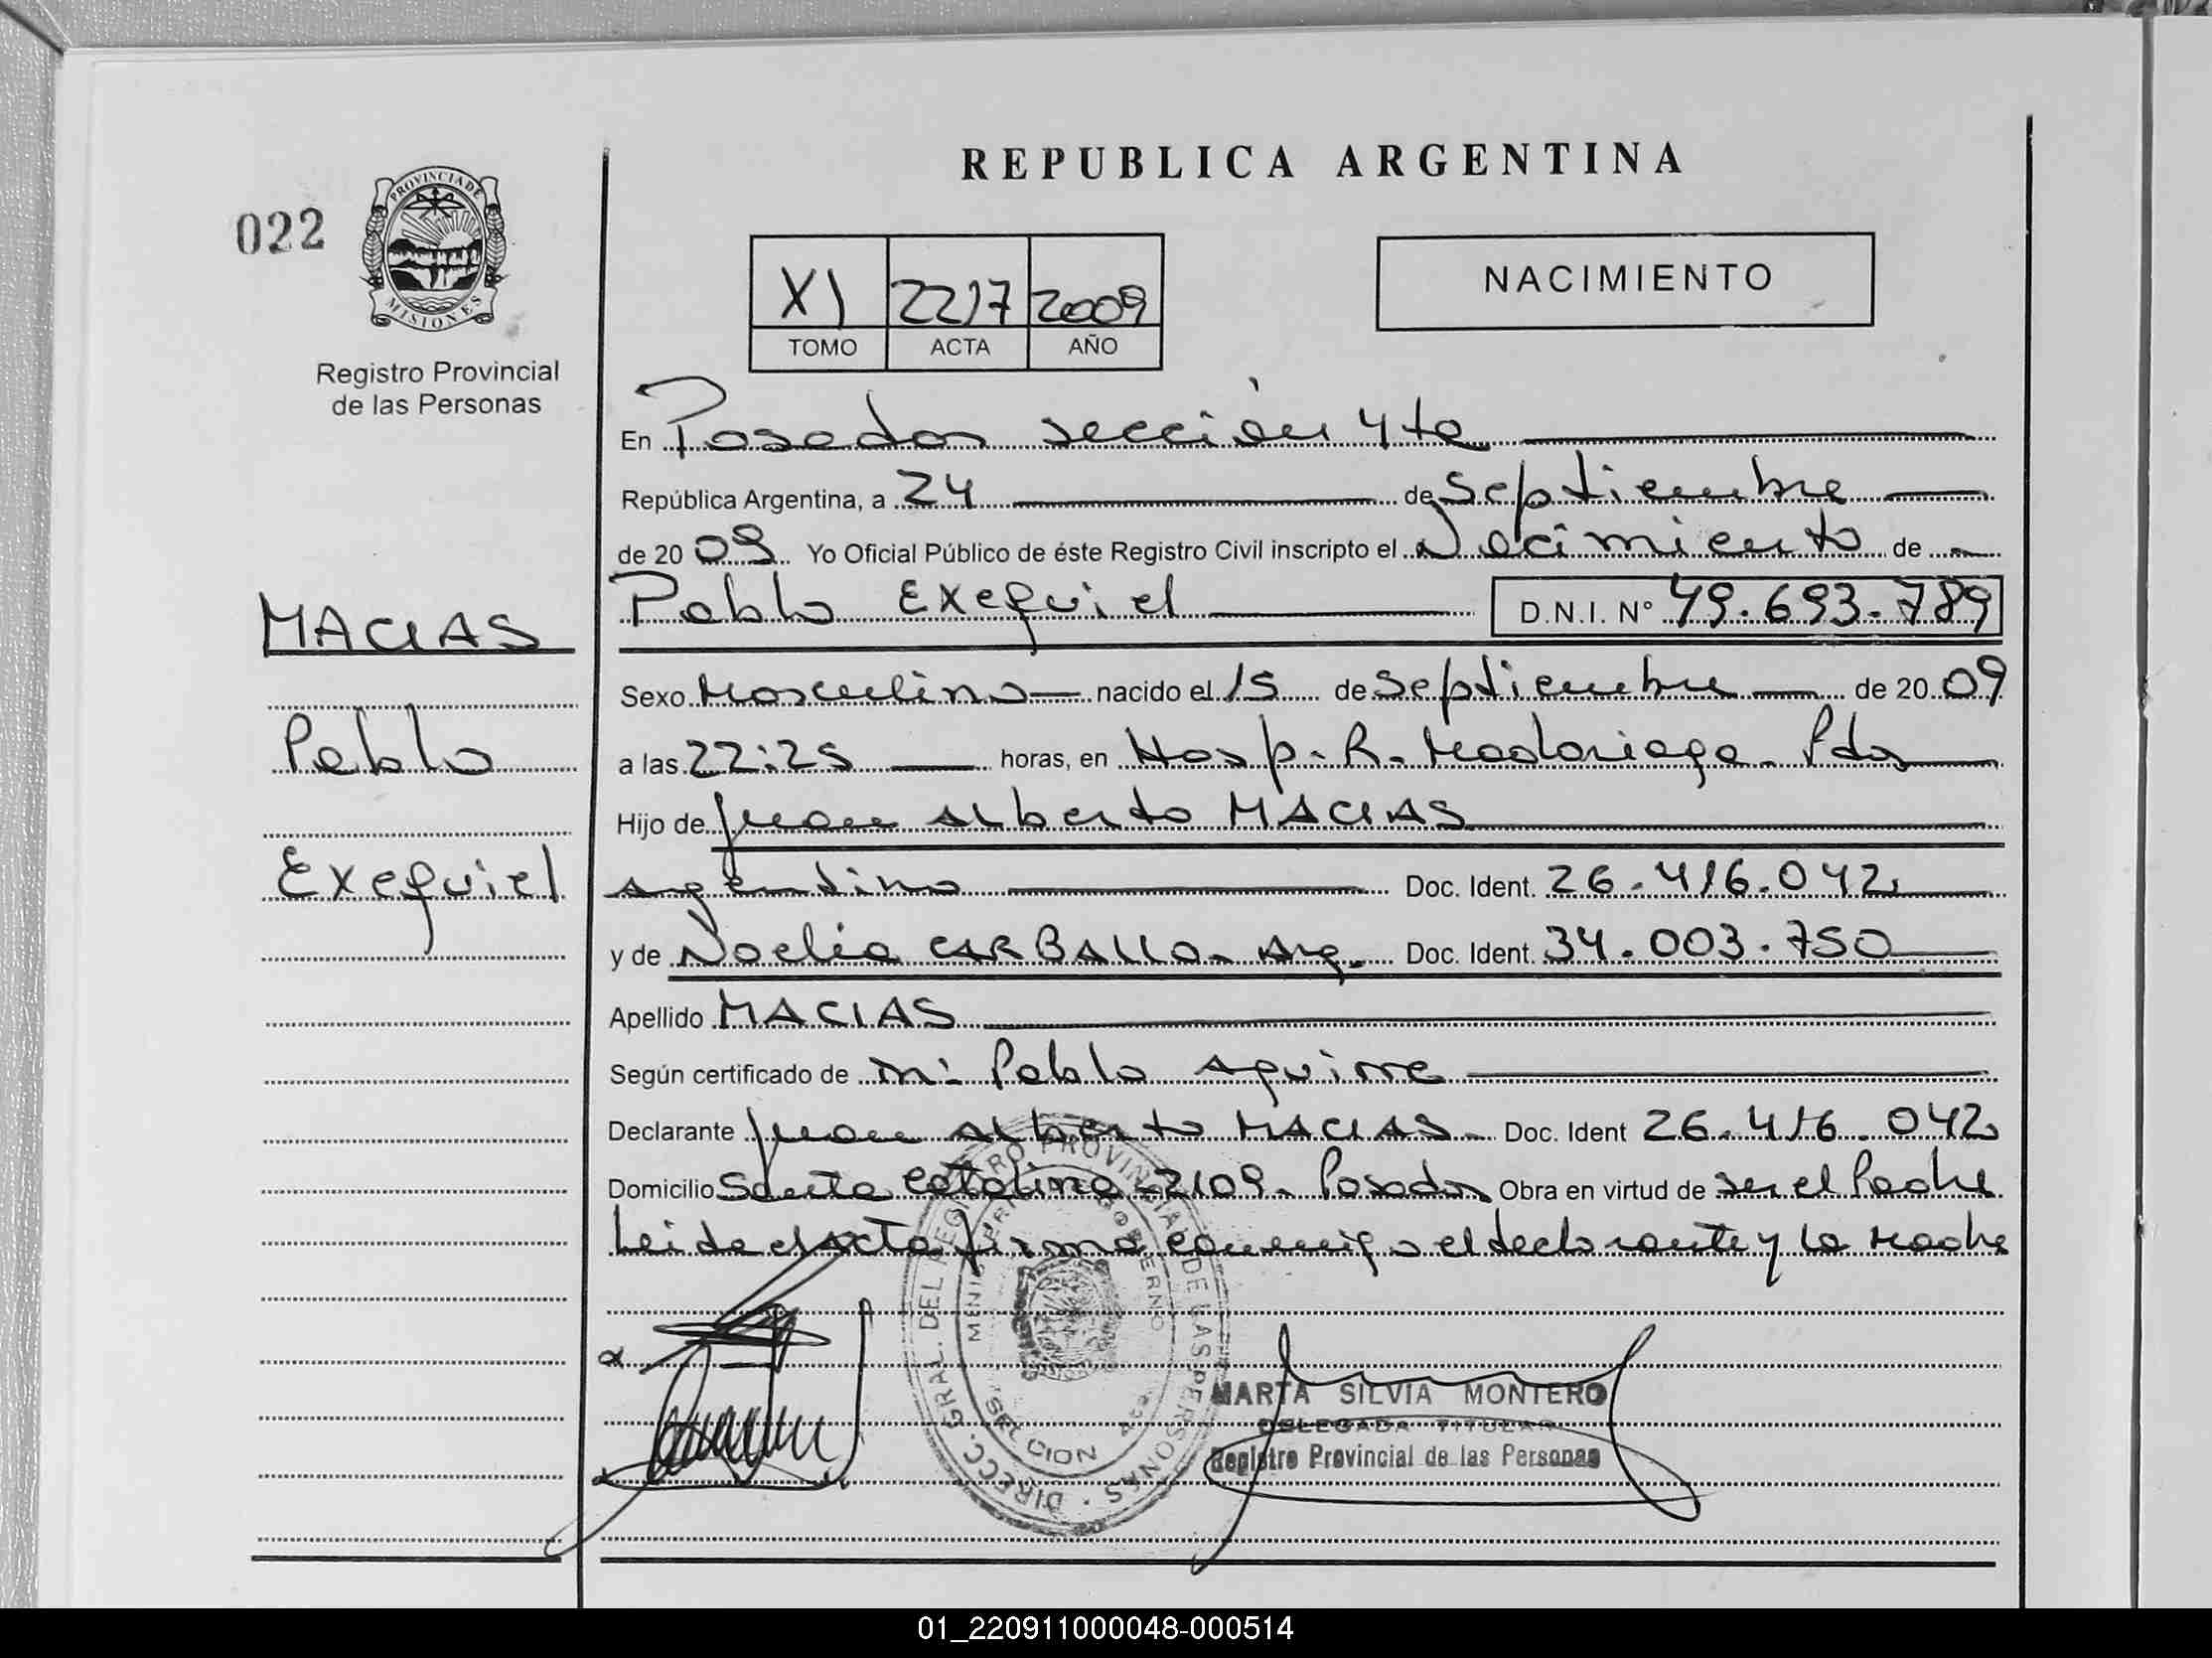 REPUBLICA ARGENTINA
022
PROVINCIA DE
MISIONES
Registro Provincial
de las Personas
XI 2217 2009
TOMO ACTA AÑO
NACIMIENTO
En Posadas sección 4ta
República Argentina, a 24 de Septiembre
de 20 09 Yo Oficial Público de éste Registro Civil inscripto el Nacimiento de
Pablo Exequiel D.N.I. Nº 49.693.789
MACIAS
Pablo
Exequiel
Sexo Masculino nacido el 15 de Septiembre de 20 09
a las 22:25 horas, en Hosp. R. Madariaga. Pdas
Hijo de Juan Alberto MACIAS
argentino Doc. Ident. 26.416.042
y de Noelia CARBALLO. Arg. Doc. Ident. 34.003.750
Apellido MACIAS
Según certificado de Pablo Aguirre
Declarante Juan Alberto MACIAS Doc. Ident 26.416.042
Domicilio Santa Catalina 2109. Posadas Obra en virtud de ser el Padre
Leida el Acta firma conmigo el declarante y la Madre
DIRECC. GRAL. DEL REGISTRO PROVINCIAL DE LAS PERSONAS
MARTA SILVIA MONTERO
DELEGADA TITULAR
Registro Provincial de las Personas
01_220911000048-000514